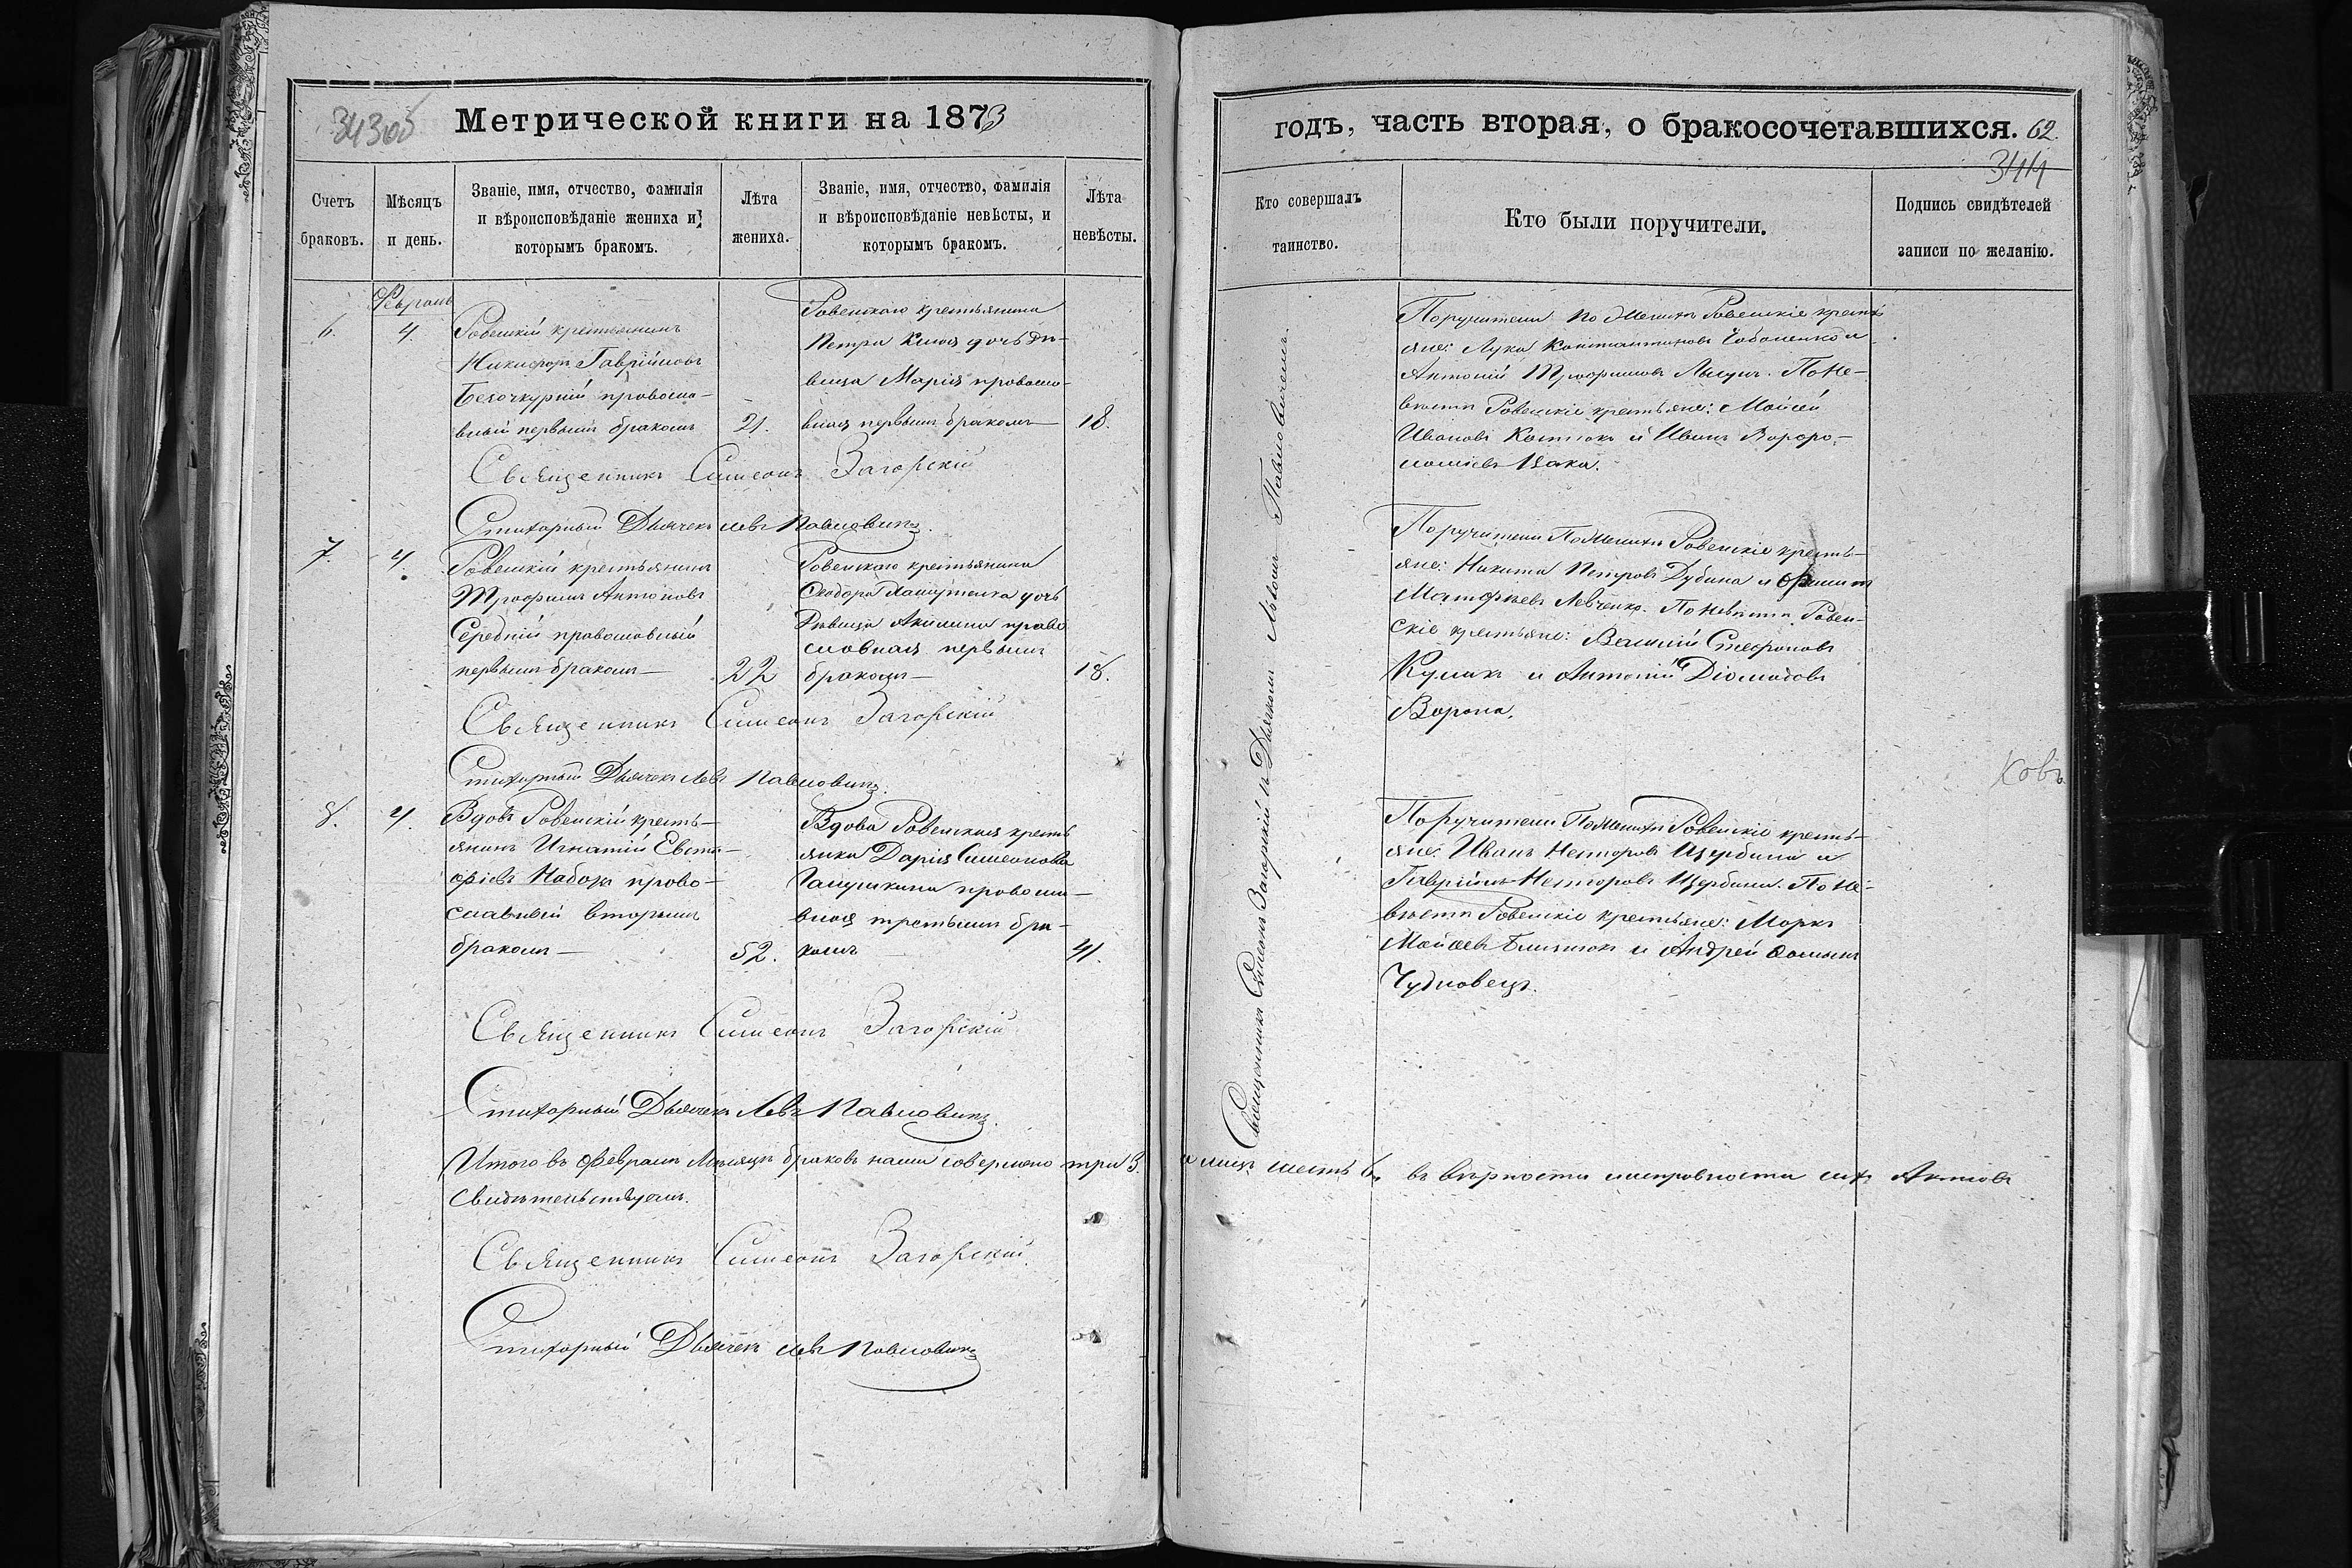 343 об
Метрической книги на 1873
Счетъ браковъ.
Мѣсяцъ и день.
Званіе, имя, отчество, фамилія
и вѣроисповѣданіе жениха и
которымъ бракомъ.
Лѣта жениха.
Званіе, имя, отчество, фамилія
и вѣроисповѣданіе невѣсты, и
которымъ бракомъ.
Лѣта невѣсты.
Февраль
6.
4.
Ровенскій крестьянинъ
Никифоръ Гавріиловъ
православ-
вный первымъ бракомъ
21.
Ровенскаго крестьянина
Петра дочь дѣ-
вица Марія правосла-
вная первымъ бракомъ
18.
Священникъ Симеонъ Загорскій
Стихарный Дьячекъ Левъ Павловичъ.
7.
4.
Ровенскій крестьянинъ
Трофимъ Антоновъ
Середній православный
первымъ бракомъ
22
Ровенскаго крестьянина
Ѳеодора дочь
Дѣвица Акилина право
славная первымъ
бракомъ
18.
Священникъ Симеонъ Загорскій
Стихарный Дьячекъ Левъ Павловичъ.
8.
4.
Вдовъ Ровенскій кресть-
янинъ Игнатій Евста-
фіевъ Набокъ право-
славный вторымъ
бракомъ
52.
Вдова Ровенская кресть
янка Дарія Симеонова
Галушкина правосла-
вная третьимъ бра-
комъ
41.
Священникъ Симеонъ Загорскій
Стихарный Дьячекъ Левъ Павловичъ.
Итого въ Февралѣ Мѣсяцѣ браковъ нами совершено три 3.
Свидѣтельствуемъ.
Священникъ Симеонъ Загорскій
Стихарный Дьячекъ Левъ Павловичъ
годъ, часть вторая, о бракосочетавшихся. 62.
344
Кто совершалъ таинство.
Кто были поручители.
Подпись свидѣтелей
записи по желанію.
Священникъ Симеонъ Загорскій съ Дьячкомъ Львомъ Павловичемъ.
Поручители по Женихѣ Ровенскіе кресть
яне: Лука Константиновъ и
Антоній Трофимовъ По Не-
вѣстѣ Ровенскіе крестьяне: Моисей
Ивановъ Костюкъ и Иванъ Варфо-
ломіевъ Цака.
Поручители По Женихѣ Ровенскіе кресть-
яне: Никита Петровъ Дубина и
Матфѣевъ Левченко. По Невѣстѣ Ровен-
скіе крестьяне: Василій Стефановъ
Кулакъ и Антоній Діомидовъ
Ворона.
Поручители По Женихѣ Ровенскіе кресть-
яне: Иванъ Несторовъ Щербина и
Гавріилъ Несторовъ Щербина. По Не-
вѣстѣ Ровенскіе крестьяне: Марко
Моисеевъ Близнюкъ и Андрей Ѳоминъ
Чудновецъ.
ковъ
а лицъ шесть 6., въ вѣрности и исправности сихъ Актовъ